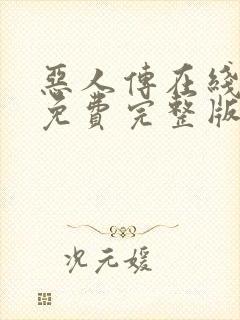 惡人傳在綫
免費完整版
况元媛